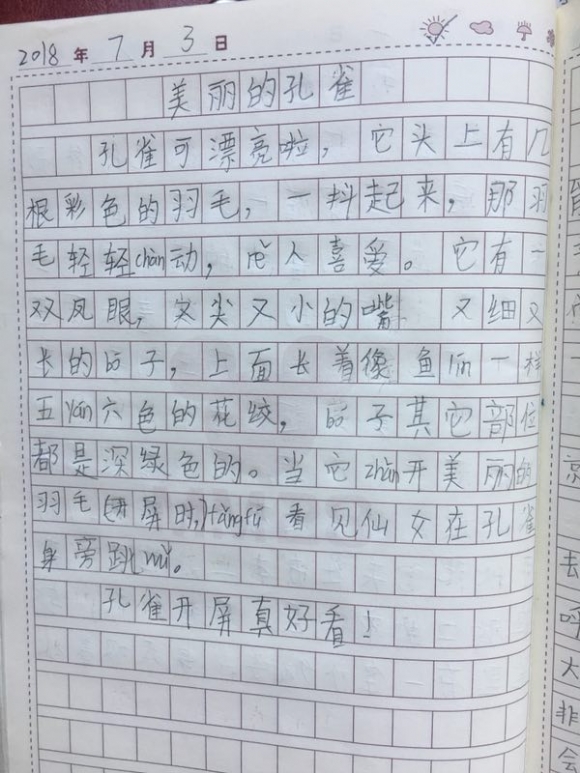 2018年7月3日
美丽的孔雀
孔雀可漂亮啦，它头上有几
根彩色的羽毛，一抖起来，那羽
毛轻轻chàn动，人喜爱。它有一
双凤眼，又尖又小的嘴 又细又
长的子，上面长着像鱼lín一样
五yán六色的花纹，子其它部位
都是深绿色的。当它zhǎn开美丽的
羽毛(开屏时,)fǎngfú看见仙女在孔雀
身旁跳wǔ。
孔雀开屏真好看！
去
呼
大
非
会